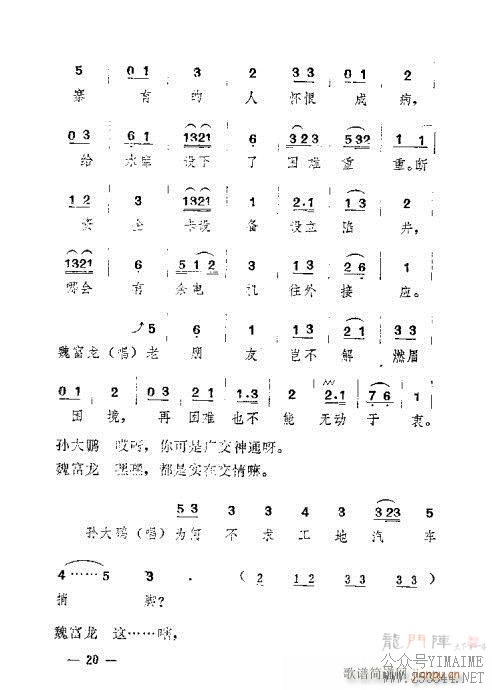 5 0 1 3 2 3 3 0 1 2
寨 有 的 人 怀恨 成 病，
0 3 6 1 1321 6 323 532 1 1
给 水库 设下 了 困难 重 重。断
1 2 3 1321 6 2·1 1 3 2
安 全 卡没 备 设立 陷 井，
1321 6 512 3 1 3 2 6 1
哪会 有 余电 机 往外 接 应。
5 6 1 3 2 1 2 3 3
魏富龙（唱）老 朋 友 岂不 解 燃眉
0 1 2 0 3 2 1 1·3 2 2·1 7 6 1
困 境，再 困难 也不 能 无动 于 衷。
孙大鹏 哎哟，你可是广交神通呀。
魏富龙 嘿嘿，都是实在交情嘛。
5 3 3 2 3 4 3 323 5
孙大鹏（唱）为何 不 求 工 地 汽 车
4……5 3· （2 1 2 3 3 3 3）
捎 脚？
魏富龙 这……嗐，
— 20 —
龍門陣
歌谱简谱网
公众号YIMAIME